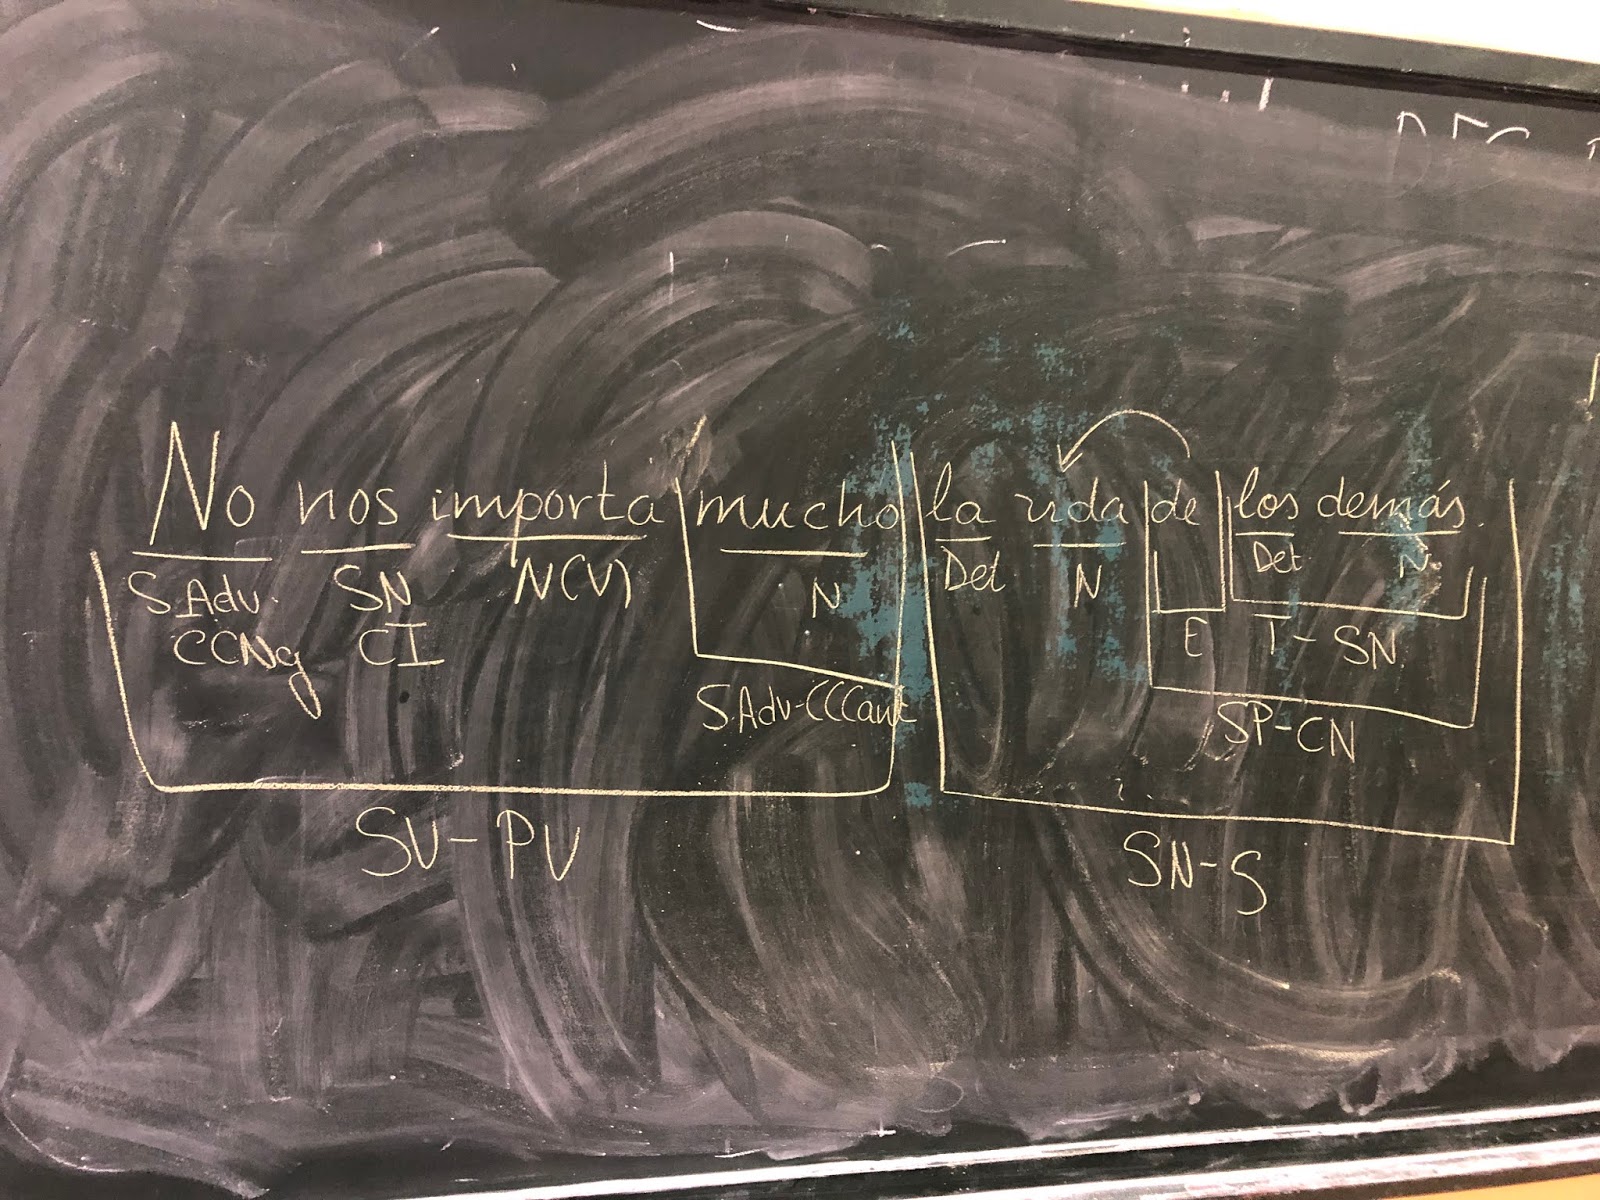 No nos importa mucho la vida de los demás.
S.Adv. SN N(V) N Det N Det N.
CCNg CI E T-SN
S.Adv-CCCant SP-CN
SV-PV SN-S